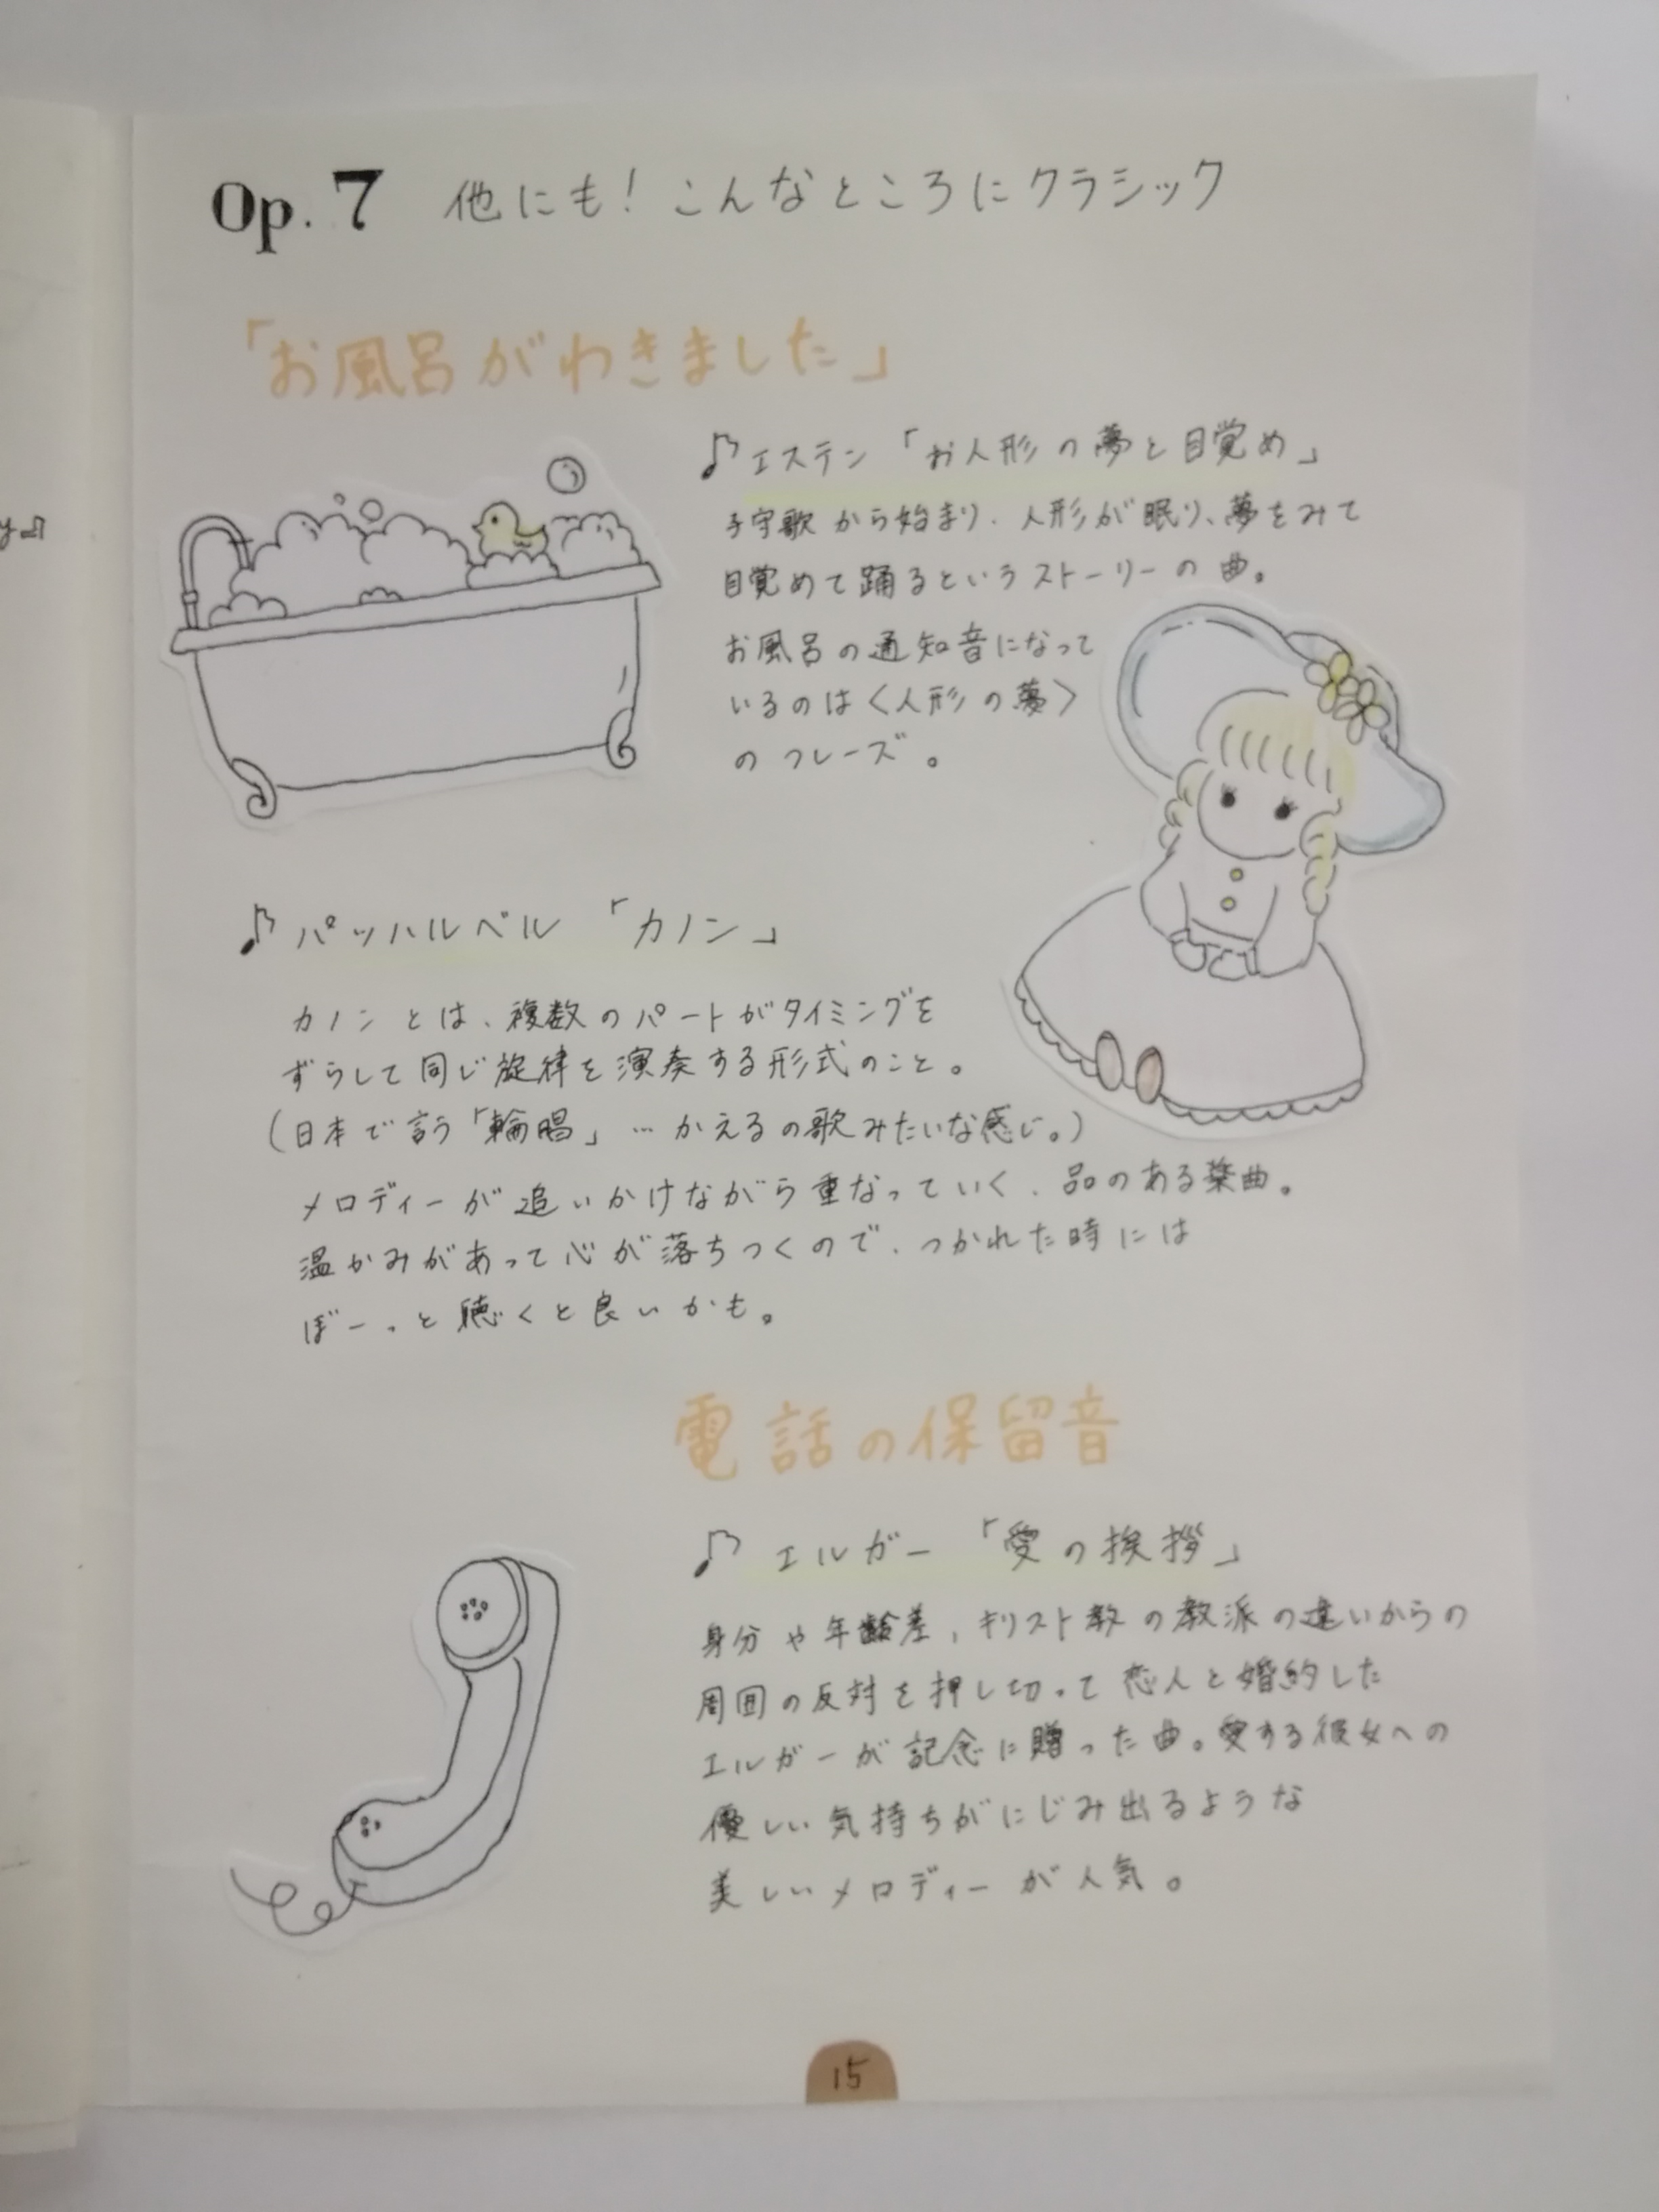 Op. 7 他にも! こんなところにクラシック
「お風呂がわきました」
♪エステン「お人形の夢と目覚め」
子守歌から始まり、人形が眠り、夢をみて
目覚めて踊るというストーリーの曲。
お風呂の通知音になって
いるのは〈人形の夢〉
のフレーズ。
♪パッハルベル「カノン」
カノンとは、複数のパートがタイミングを
ずらして同じ旋律を演奏する形式のこと。
(日本で言う「輪唱」…かえるの歌みたいな感じ。)
メロディーが追いかけながら重なっていく、品のある楽曲。
温かみがあって心が落ちつくので、つかれた時には
ぼーっと聴くと良いかも。
電話の保留音
♪エルガー「愛の挨拶」
身分や年齢差,キリスト教の教派の違いからの
周囲の反対を押し切って恋人と婚約した
エルガーが記念に贈った曲。愛する彼女への
優しい気持ちがにじみ出るような
美しいメロディーが人気。
15